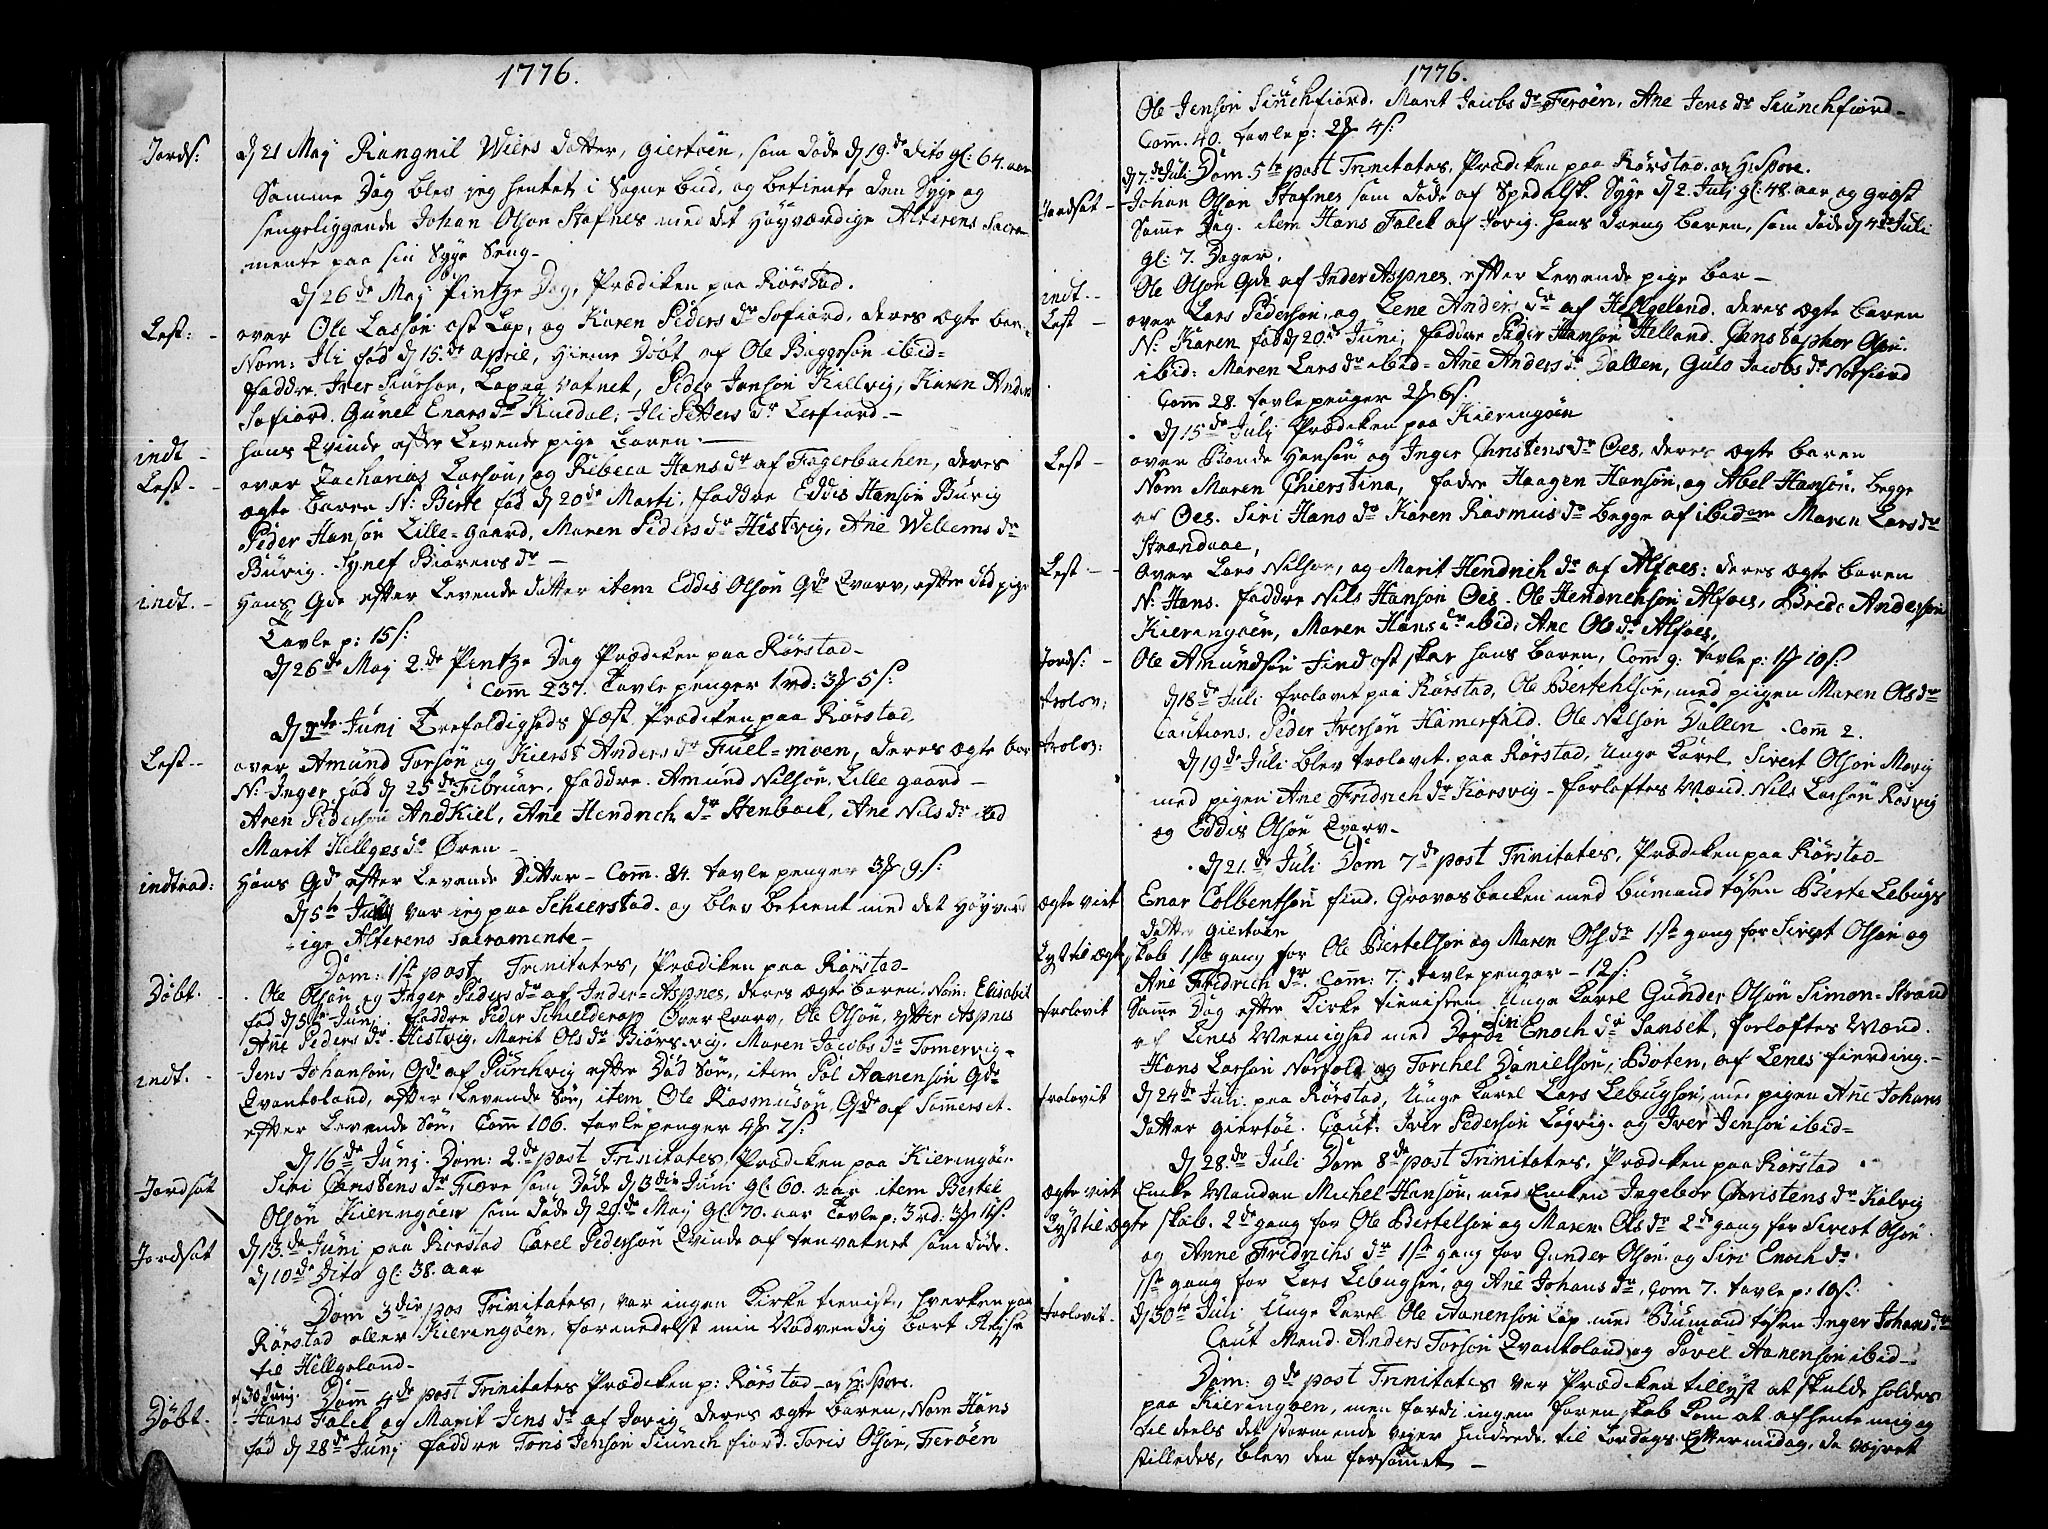 1776.
Jords: d 21 Maj Rangnil Wiers datter, Giertøen, som døde d 19.de dito gl: 64. aar
Samme Dag blev jeg hentet i Sogne bud, og betiente den Syge og
sengeliggende Johan Olson Stofnes med det Høyværdige Alterens Sacra-
mente paa sin Syge Seng-
d 26de Maj Pintze Dag, Prædiken paa Rörstad.
Lest: - over Ole Lassön ost Lap, og Karen Peders dr Sofiord, deres ægte barn
Nom: Ili fød d 15.de april, hieme Døbt af Ole Baggesön ibid=
faddre. Iver Siursön, Lap paa Vatnet, Peder Janson Killvig, Karen Anders
Sofiord. Gunel Enars dr Kiædal; Ili Pitters dr Lerfiord-
indt - hans Qvinde efter Levende pige Baren.
Lest. - over Zacharias Larsön, og Rebeca Hans dr af Fagerbachen, deres
ægte baren N: Berte fød d 20de Marti, faddre Eddis Hansön Buvig
Peder Hansön Lille-gaard, Maren Peders dr Histvig, Ane Wellems dr
Buvig. Synef Biørens dr -
indt. - Hans Qde efter Levende datter item Eddis Olsön Qde Qvarv, efter død pige
Tavle p: 15 s:
d 26de Maj 2.de Pintze Dag Prædiken paa Rörstad-
Com̅ 237. Tavle penger 1 rd: 3 5 s:
d 2de Juni Trefoldigheds fæst. Prædiken paa Rörstad.
Lest-- over Amund Torsön og Kierst Anders dr Fuel-moen, deres ægte bar
N: Inger fød d 25de Februar. faddre. Amund Nilsön, Lille gaard-
Aren Pederson AndKiel, Ane Hendrich dr Stenback, Ane Nils dr ibid
Marit Hellges dr Øren-
indtrad: Hans Qde efter Levende Ditter- Com̅. 84. tavle penger 3 9 s:
d 5te Juni var jeg paa Schierstad. og blev betient med det Høyværd
ige Alterens Sacramente-
Dom: 1ste post Trinitates, Prædiken paa Rörstad-
Døbt. - Ole Olsön og Inger Peders dr af Inder-Aspnes, deres ægte baren. Nom: Elisabet
fød d 5te Juni, faddre Peder Schilderop Over Qvarv, Ole Olsön, Ytter Aspnes
Ane Peders dr Histvig, Marit Ols dr Biørs-vig. Maren Jacobs dr Tomervig-
indt. - Jens Johansön, Qde af Purchvig efter Død Søn, item Pøl Aanensön Qde
Qvantoland, efter Levende Søn, item Ole Rasmusön, Qde af Som̅erset.
efter Levende Søn, Com̅ 106. tavle penger 4 7 s:
d 16de Junj. Dom: 2.de post Trinitates, Prædiken paa Kieringöe.
Jordsat Siri Carstens dr Fiære som Døde d 3die Juni gl: 60. aar item Bertel
Olsön Kieringöen som døde d 29.de Maj gl: 70. aar Tavle p: 3 rd: 3 11 s.
Jordsat d 13.de Juni paa Rörstad Carel Pedersön Qvinde af tenvatnet som døde.
d 10de Dito gl: 38. aar
Dom 3die pos Trinitates, var ingen Kirke tieniste, hverken paa
Rörstad eller Kieringöen, formedelst min Nødvendig bort Reise
til Hellgeland-
d 30 Juni. Dom̅ 4de post Trinitates Prædiken p: Rörstad- og H: Spore.
Døbt. - Hans Falck og Marit Jens dr af Jovig, deres ægte baren, Nom Hans
fød d 28de Junj faddre Toris Jenson Siunchfiord. Toris Olson, Ferøen
1776.
Ole Jensön Siunchfiord. Marit Jacobs dr Ferøen, Ane Jens dr Siunchfiord-
Com̅. 40. tavle p: 2 4 s:
d 7.de Juli Dom 5te post Trinitates, Prædiken paa Rörstad. og H: Spore.
Jordsat - Johan Olson Stofnes som døde af Spedalsk. Syge d 2. Julj gl: 48. aar og
Sam̅e Dag. item Hans Falck af Jovig. hans dreng baren, som døde d 4de Juli
gl: 7. Dager.
indt.- Ole Olsön Qde af Inder Aspnes, efter Levende pige bar-
Lest - over Lars Pedersön, og Lene Anders dr af Hellgeland. deres ægte baren
N: Karen fød d 20de Juni, faddre Peder Hansön Helland. Christopher Olsön.
ibid: Maren Lars dr ibid- Ane Anders dr Dallen, Gulo Jacobs dr Norfiord
Com̅ 28. tavle penger 2 6 s:
d 15de Julj Prædiken paa Kieringöen
Lest - over Bonde Hansön og Inger Christens dr Oes, deres ægte baren
Nom Maren Chierstina, fadre Haagen Hansön, og Abel Hansön. begge
af Oes. Siri Hans dr Karen Rasmus dr begge af ibidem Maren Lars dr
Strandaae,
Lest - - Over Lars Nilson, og Marit Hendrich dr af Alfoes: deres ægte baren
N: Hans. faddre Nils Hanson Oes. Ole Hendrichsön Alfoes, Brede Anderson
Kieringöen, Maren Hans dr ibid; Ane Ols dr Alfoes,
Jords: - Ole Amundsön Find ost skar hans baren, Com̅ 9: tavle p: 1 10 s:
trolov: d 18de Juli trolovet paa Rörstad, Ole Bertehlsön, med piigen Maren Ols dr
Cautions. Peder Iversön Hamerfald. Ole Nilsön Dallen. Com̅ 2.
trolov: d 19de Juli blev trolovet. paa Rörstad, Unge Karel Sivert Olsön Movig
med pigen Ane Fridrich dr Korsvig- forløftes Mænd. Nils Larsön Rosvig
og Eddis Olsön Qvarv-
d 21.de Juli Dom 7de post Trinitates, Prædiken paa Rörstad-
ægte viet Enar Colbentsön find. Gravosbacken med bumand tøsen Berte Lebugs
datter Giertøen
Lyst til ægte skab 1ste gang for Ole Bertelsön og Maren Ols dr 1ste gang for Sivert Olsön og
Ane Fridrich dr. Com̅: 7: tavle penger- 12 s:
trolovit Sam̅e Dag efter Kirke tienisten Unge Karel Gunder Olsön Simon-Strand
af Lenes Meenighed med Siri Enoch dr Sanset, forløftes Mænd.
Hans Larson Norfold og Torchel Danielsön, Boten, af Lenes fierding.-
trolovit d 24de Juli paa Rörstad, Unge Karel Lars Lebugsön, med pigen Ane Johans
datter Giertøe. Caut: Iver Pederson Løgvig. og Iver Jensön ibid-
d 28.de Juli Dom 8de post Trinitates, Prædiken paa Rörstad
ægte viet Encke Manden Michel Hansön, med Encken Ingebor Christens dr Kalvig
Lyst til ægte skab. 2de gang for Ole Bertelsön og Maren Ols dr 2de gang for Sivert Olsön
og Anne Fridrichs dr 1ste gang for Gunder Olsön og Siri Enoch dr
1ste gang for Lars Lebugsön, og Ane Johans dr, Com 7. tavle p: 10 s:
trolovit. d 30te Juli Unge Karel Ole Aanensön Lap med Bumand tøsen Inger Johans dr
Caut Mend. Anders Torsön Qvantoland og Povel Aanensön ibid-
Dom: 9de post Trinitates var Prædiken tillyst at skulde holdes
paa Kieringöen, men fordi ingen foren skab kom at afhente mig og
til deels det stormende vejer hindrede. til Lørdags Eftermidag, da vejret
stilledes, blev den forsømet -